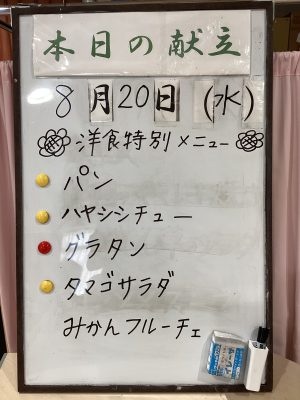 本日の献立
8月20日(水)
洋食特別メニュー
パン
ハヤシシチュー
グラタン
タマゴサラダ
みかんフルーチェ